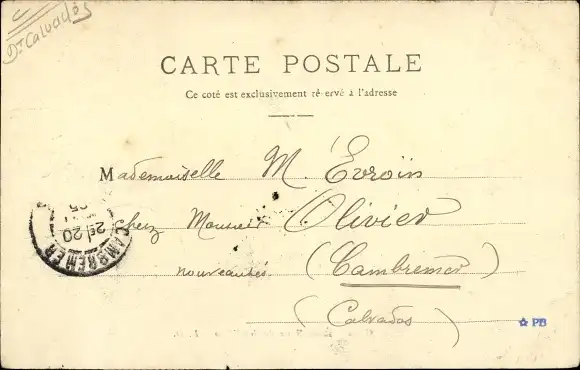 Dt Calvados
CARTE POSTALE
Ce coté est exclusivement ré ervé à l'adresse
Mademoiselle M. Evroïn
chez Monsieur Olivier
nouveautés (Cambremer)
(Calvados)
CAMBREMER
2E 20
05
☆ PB